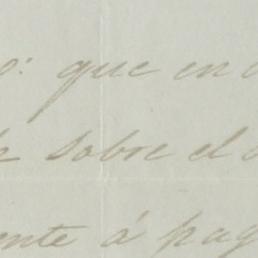 o: que en
sobre el
ente á pag